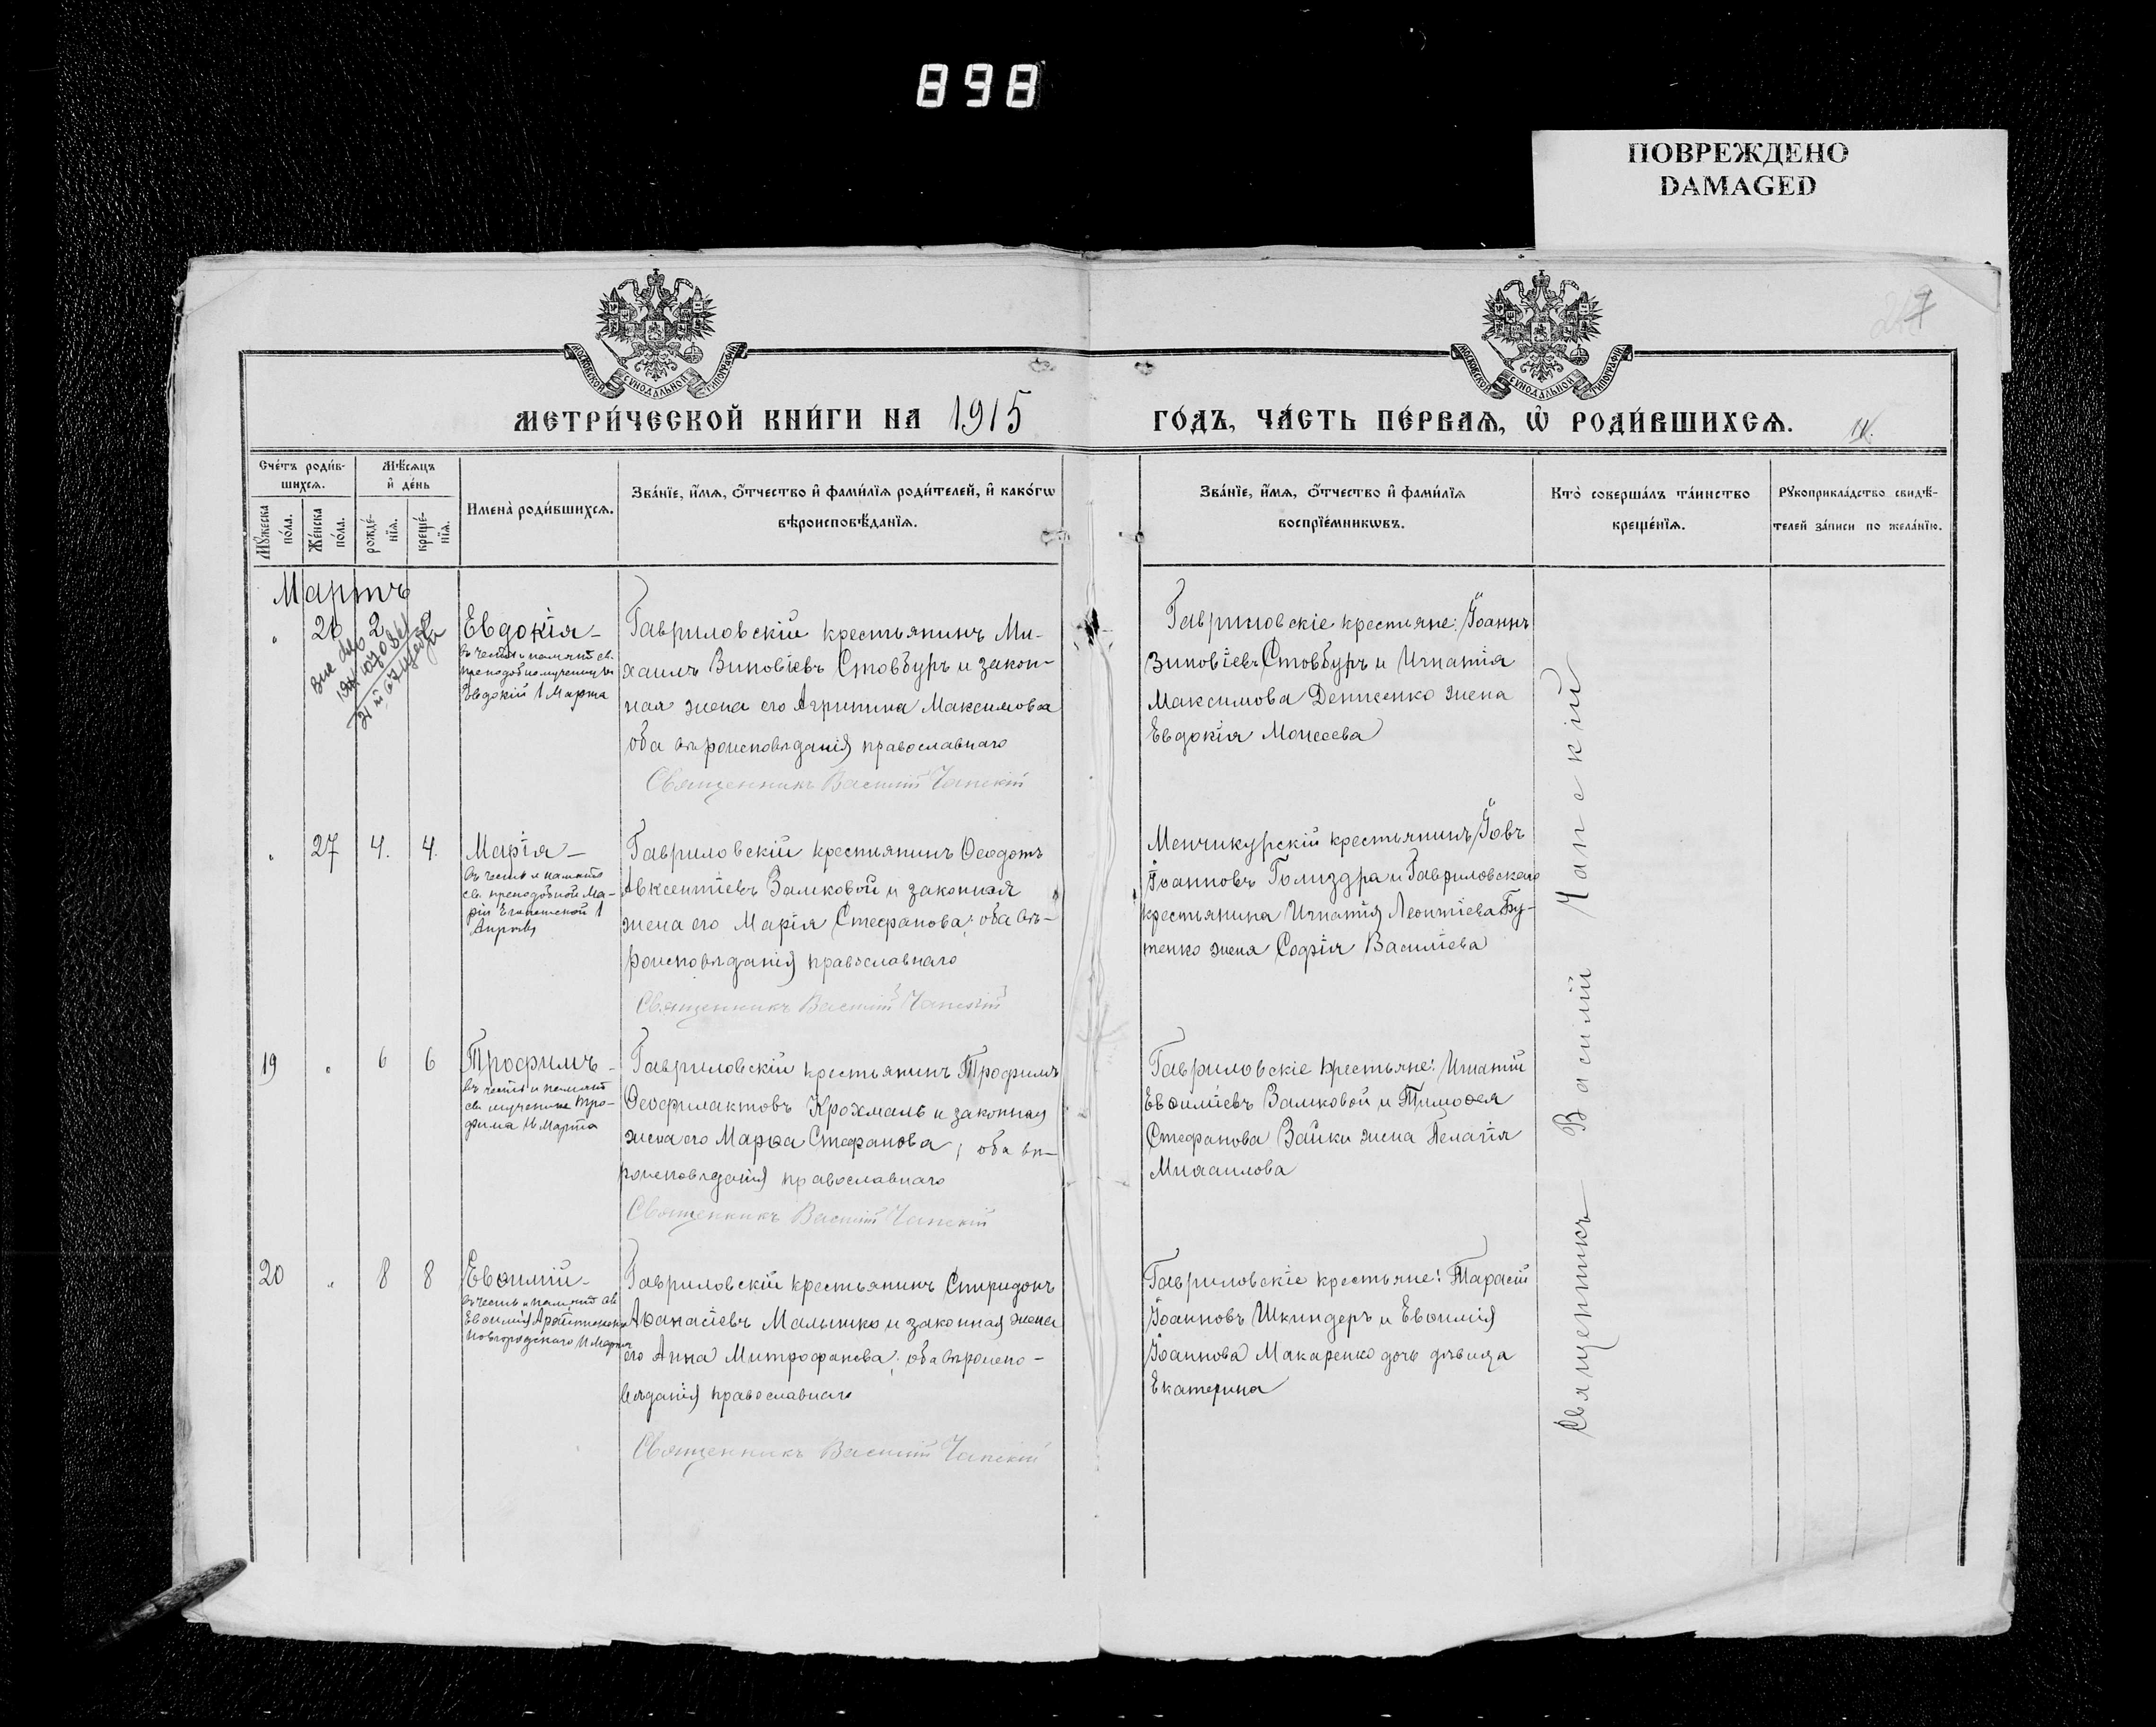 898
ПОВРЕЖДЕНО
DAMAGED
МОСКОВСКОЙ СѴНОДАЛЬНОЙ ТИПОГРАФІИ
МОСКОВСКОЙ СѴНОДАЛЬНОЙ ТИПОГРАФІИ
МЕТРИ́ЧЕСКОЙ КНИ́ГИ НА 1915
ГО́ДЪ, ЧА́СТЬ ПЕ́РВАѦ, Ѡ҆ РОДИ́ВШИХСѦ.
Сче́тъ роди́в-
шихсѧ.
Мꙋ́жеска
по́ла.
Же́нска
по́ла.
Мѣ́сѧцъ
и҆ де́нь
рожде́-
нїѧ.
креще́-
нїѧ.
И҆мена̀ роди́вшихсѧ.
Зва́нїе, и҆́мѧ, ѻ҆́тчество и҆ фами́лїѧ роди́телей, и҆ како́гѡ
вѣроисповѣ́данїѧ.
Зва́нїе, и҆́мѧ, ѻ҆́тчество и҆ фами́лїѧ
воспрїе́мникѡвъ.
Кто̀ соверша́лъ та́инство
креще́нїѧ.
Рꙋкоприкла́дство свидѣ́-
телей за́писи по жела́нїю.
Мартъ
26 2
Евдокія-
въ честь и память св.
преподобномученицы
Евдокіи 1 Марта
Гавриловскій крестьянинъ Ми-
хаилъ Зиновіевъ Стовбуръ и закон-
ная жена его Агрипина Максимова
оба вѣроисповѣданія православнаго
Священникъ Василій Чапскій
Гавриловскіе крестьяне: Іоаннъ
Зиновіевъ Стовбуръ и Игнатія
Максимова Денисенко жена
Евдокія Моисеева
27 4. 4.
Марія-
въ честь и память
св. преподобной Ма-
ріи Египетской 1
Апрѣля
Гавриловскій крестьянинъ Ѳеодотъ
Авксентіевъ Замковой и законная
жена его Марія Стефанова; оба вѣ-
роисповѣданія православнаго
Священникъ Василій Чапскій
Менчикурскій крестьянинъ Іовъ
Іоанновъ Голиздра и Гавриловскаго
крестьянина Игнатія Леонтіева Бу-
тенко жена Софія Василіева
19 6 6
Трофимъ-
въ честь и память
св. мученика Тро-
фима
Марта
Гавриловскій крестьянинъ Трофимъ
Ѳеофилактовъ Крохмаль и законная
жена его Марѳа Стефанова; оба вѣ-
роисповѣданія православнаго
Священникъ Василій Чапскій
Гавриловскіе крестьяне: Игнатій
Евѳиміевъ Замковой и Тимоѳея
Стефанова Зайки жена Пелагія
Михаилова
20 8 8
Евѳимій-
въ честь и память св.
Евѳимія Архіепископа
Новгородскаго 11 Марта
Гавриловскій крестьянинъ Спиридонъ
Аѳанасіевъ Малышко и законная жена
его Анна Митрофанова; оба вѣроиспо-
вѣданія православнаго
Священникъ Василій Чапскій
Гавриловскіе крестьяне: Тарасій
Іоанновъ Шкиндеръ и Евѳимія
Іоаннова Макаренко дочь дѣвица
Екатерина
Священникъ Василій Чапскій